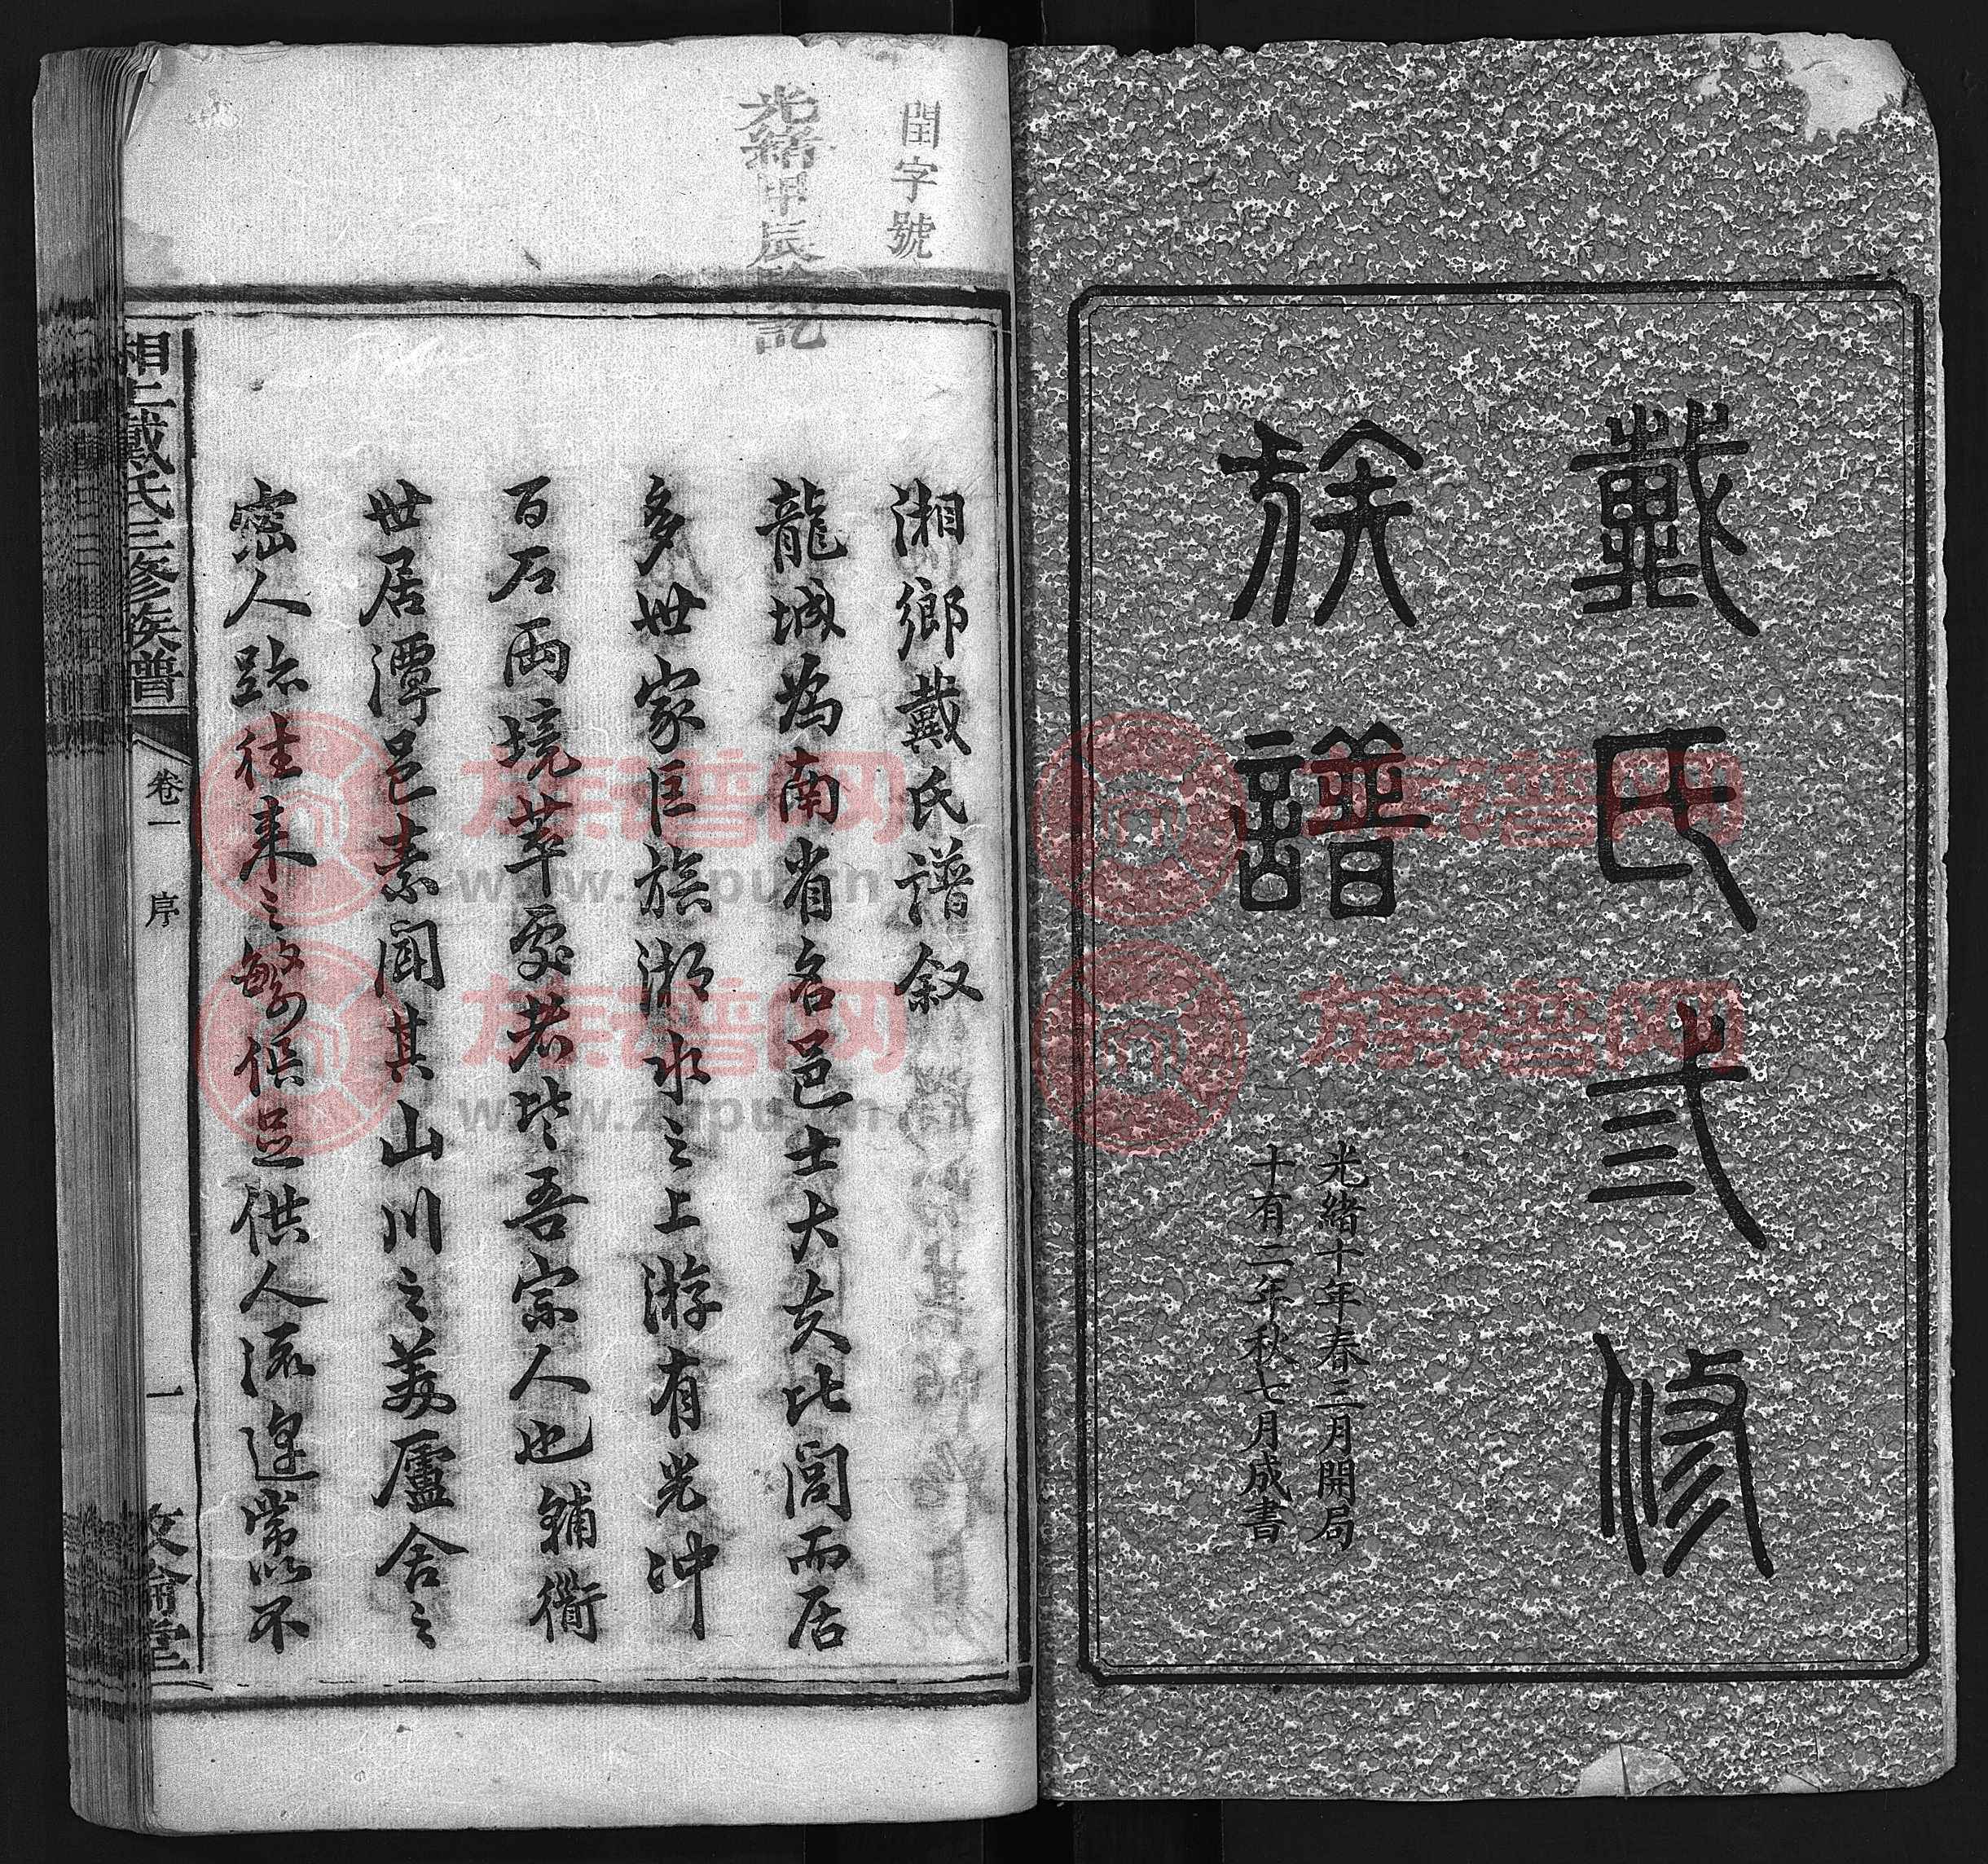 戴氏弎修
族譜
光緒十年春三月開局
十有二年秋七月成書
閏字號
光緒甲辰 記
湘鄉戴氏譜叙
龍城為南省名邑士大夫比閭而居
多世家巨族湘水之上游有光冲
百石兩境萃處者皆吾宗人也輔衢
世居潭邑素聞其山川之美廬舍之
密人跡往来之繁俱足供人流連常以不
上戴氏三修族譜
卷一
序
一
敦倫堂
族谱网
www.zupu.cn
族谱网
www.zupu.cn
族谱网
族谱网